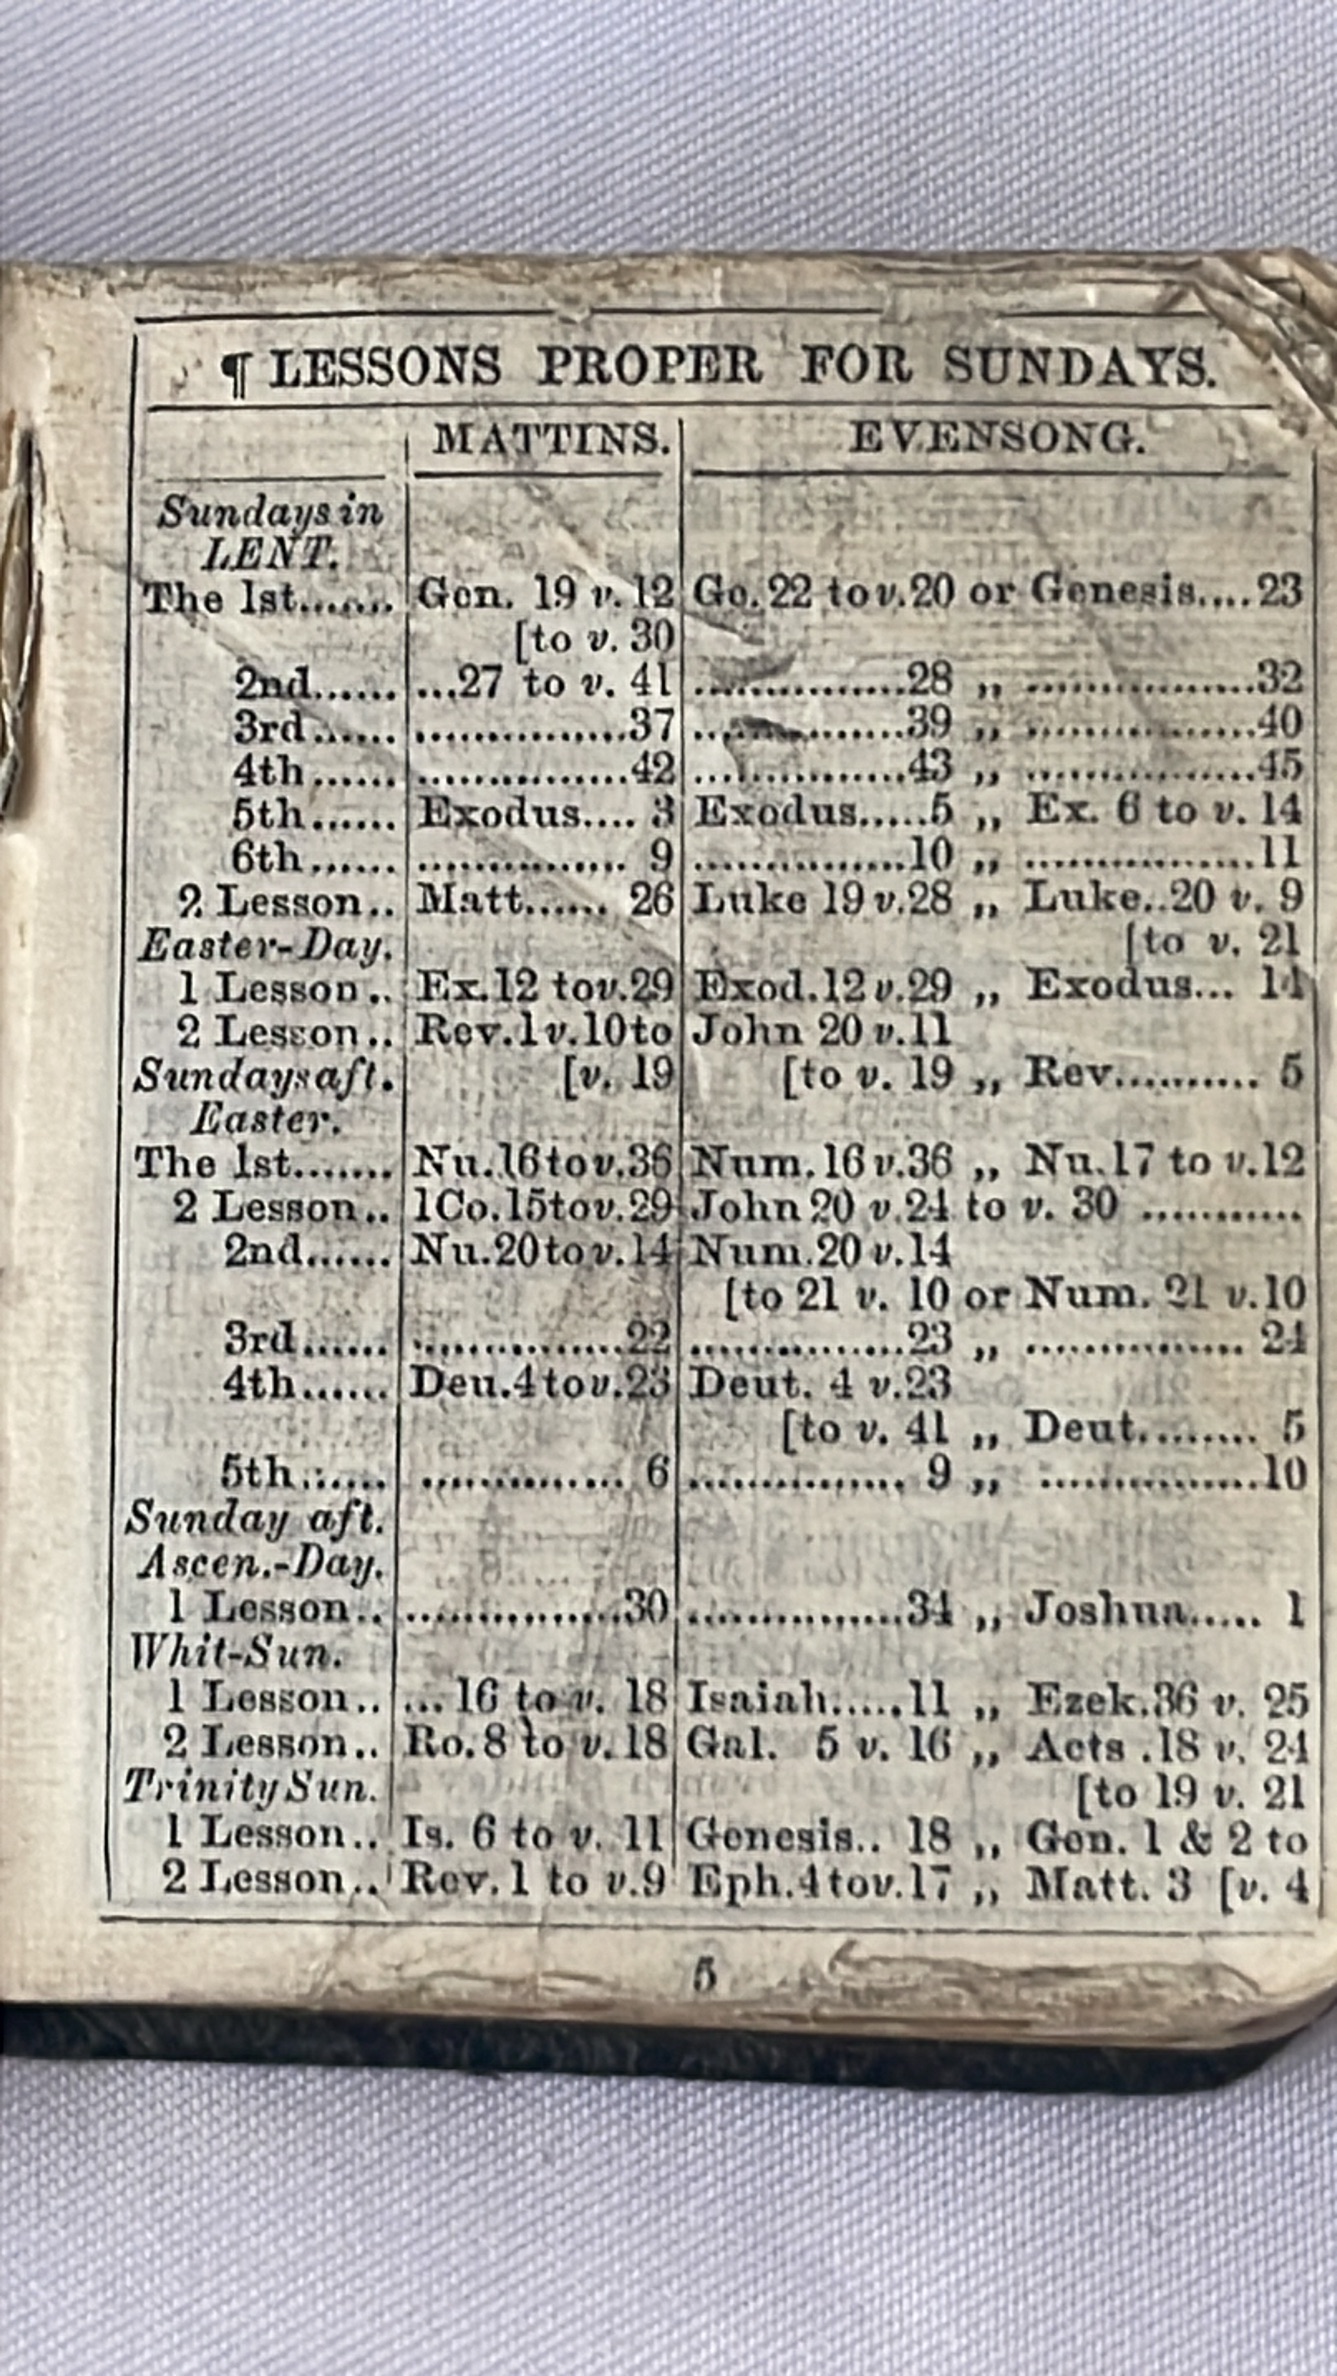 ¶ LESSONS PROPER FOR SUNDAYS.
MATTINS. EVENSONG.
Sundays in
LENT.
The 1st....... Gen. 19 v. 12 Ge. 22 to v. 20 or Genesis....23
[to v. 30
2nd...... ...27 to v. 41 ...............28 ,, ................32
3rd...... ...............37 ...............39 ,, ................40
4th...... ...............42 ...............43 ,, ................45
5th...... Exodus.... 3 Exodus.....5 ,, Ex. 6 to v. 14
6th...... ............... 9 ...............10 ,, ................11
2 Lesson.. Matt...... 26 Luke 19 v. 28 ,, Luke..20 v. 9
Easter-Day. [to v. 21
1 Lesson.. Ex. 12 to v. 29 Exod. 12 v. 29 ,, Exodus... 14
2 Lesson.. Rev. 1 v. 10 to John 20 v. 11
Sundays aft. [v. 19 [to v. 19 ,, Rev.......... 5
Easter.
The 1st....... Nu. 16 to v. 36 Num. 16 v. 36 ,, Nu. 17 to v. 12
2 Lesson.. 1 Co. 15 to v. 29 John 20 v. 24 to v. 30 ...........
2nd...... Nu. 20 to v. 14 Num. 20 v. 14
[to 21 v. 10 or Num. 21 v. 10
3rd...... ...............22 ...............23 ,, ............... 24
4th...... Deu. 4 to v. 23 Deut. 4 v. 23
[to v. 41 ,, Deut......... 5
5th...... ............... 6 ............... 9 ,, ................10
Sunday aft.
Ascen.-Day.
1 Lesson.. ...............30 ...............34 ,, Joshua..... 1
Whit-Sun.
1 Lesson.. ... 16 to v. 18 Isaiah.....11 ,, Ezek. 36 v. 25
2 Lesson.. Ro. 8 to v. 18 Gal. 5 v. 16 ,, Acts . 18 v. 24
Trinity Sun. [to 19 v. 21
1 Lesson.. Is. 6 to v. 11 Genesis.. 18 ,, Gen. 1 & 2 to
2 Lesson.. Rev. 1 to v. 9 Eph. 4 to v. 17 ,, Matt. 3 [v. 4
5